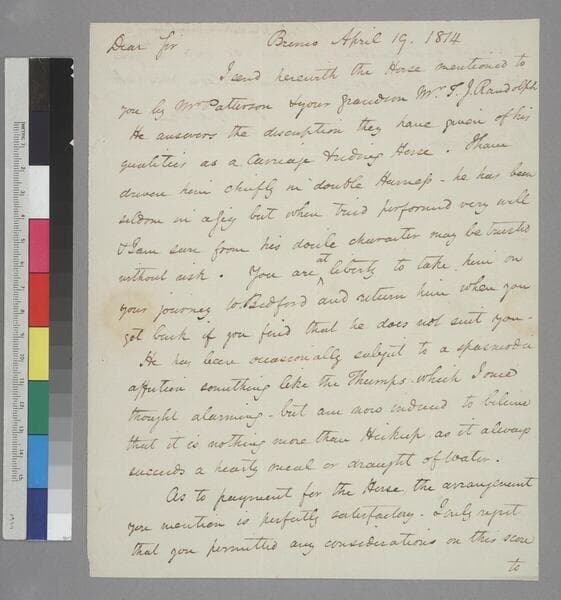 Dear Sir Bremo April 19. 1814
I send herewith the Horse mentioned to
you by Mr Patterson & your grandson Mr T. J. Randolph
He answers the discription they have given of his
qualities as a Carriage & riding Horse. I have
driven him chiefly in double Harness - he has been
seldom in a gig but when tried performed very well
& I am sure from his docile character may be trusted
without risk. You are at liberty to take him on
your journey to Bedford and return him when you
get back if you find that he does not suit you -
He has been occasionally subject to a spasmodic
affection something like the Thumps which I once
thought alarming - but am now induced to believe
that it is nothing more than Hickup as it always
succeeds a hearty meal or draught of Water.
As to payment for the Horse the arrangement
you mention is perfectly satisfactory. I only regret
that you permitted any considerations on this score
to